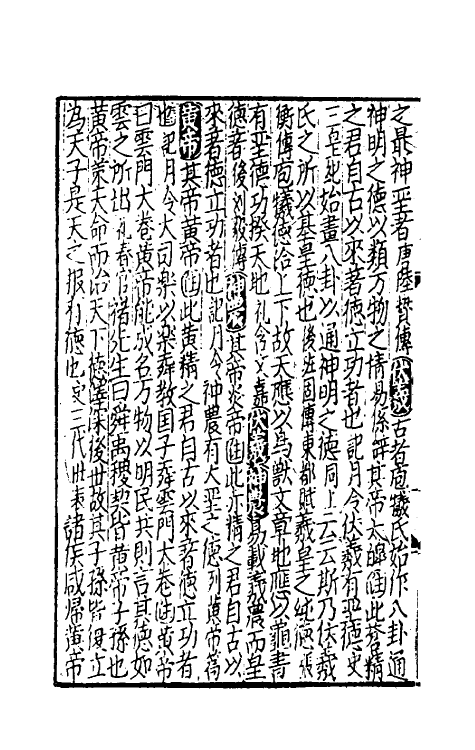 之最神聖者唐陸贄傳伏羲古者庖犧氏始作八卦通
神明之德以類萬物之情易係辭其帝太皥注此蒼精
之君自古以來著德立功者也記月令伏羲有聖德史
三皇紀始畫八卦以通神明之德同上云云斯乃伏羲
氏之所以基皇德也後班固傳東都賦羲皇之純德張
衡傳庖犧德洽上下故天應以鳥獸文章地應以龜書
有聖德功揆天地禮含文嘉伏羲神農易載羲農而皇
德著後列班傳神農其帝炎帝注此赤精之君自古以
來著德立功者也記月令神農有大聖之德列黃帝為
黃帝其帝黃帝注此黃精之君自古以來著德立功者
也記月令大司樂以樂舞教國子舞雲門大卷注黃帝
曰雲門大卷黃帝能成名萬物以明民共財言其德如
雲之所出禮春官褚先生曰舜禹稷契皆黃帝子孫也
黃帝策天命而治天下德澤深後世故其子孫皆復立
為天子是天之報有德也史三代世表諸侯咸歸黃帝